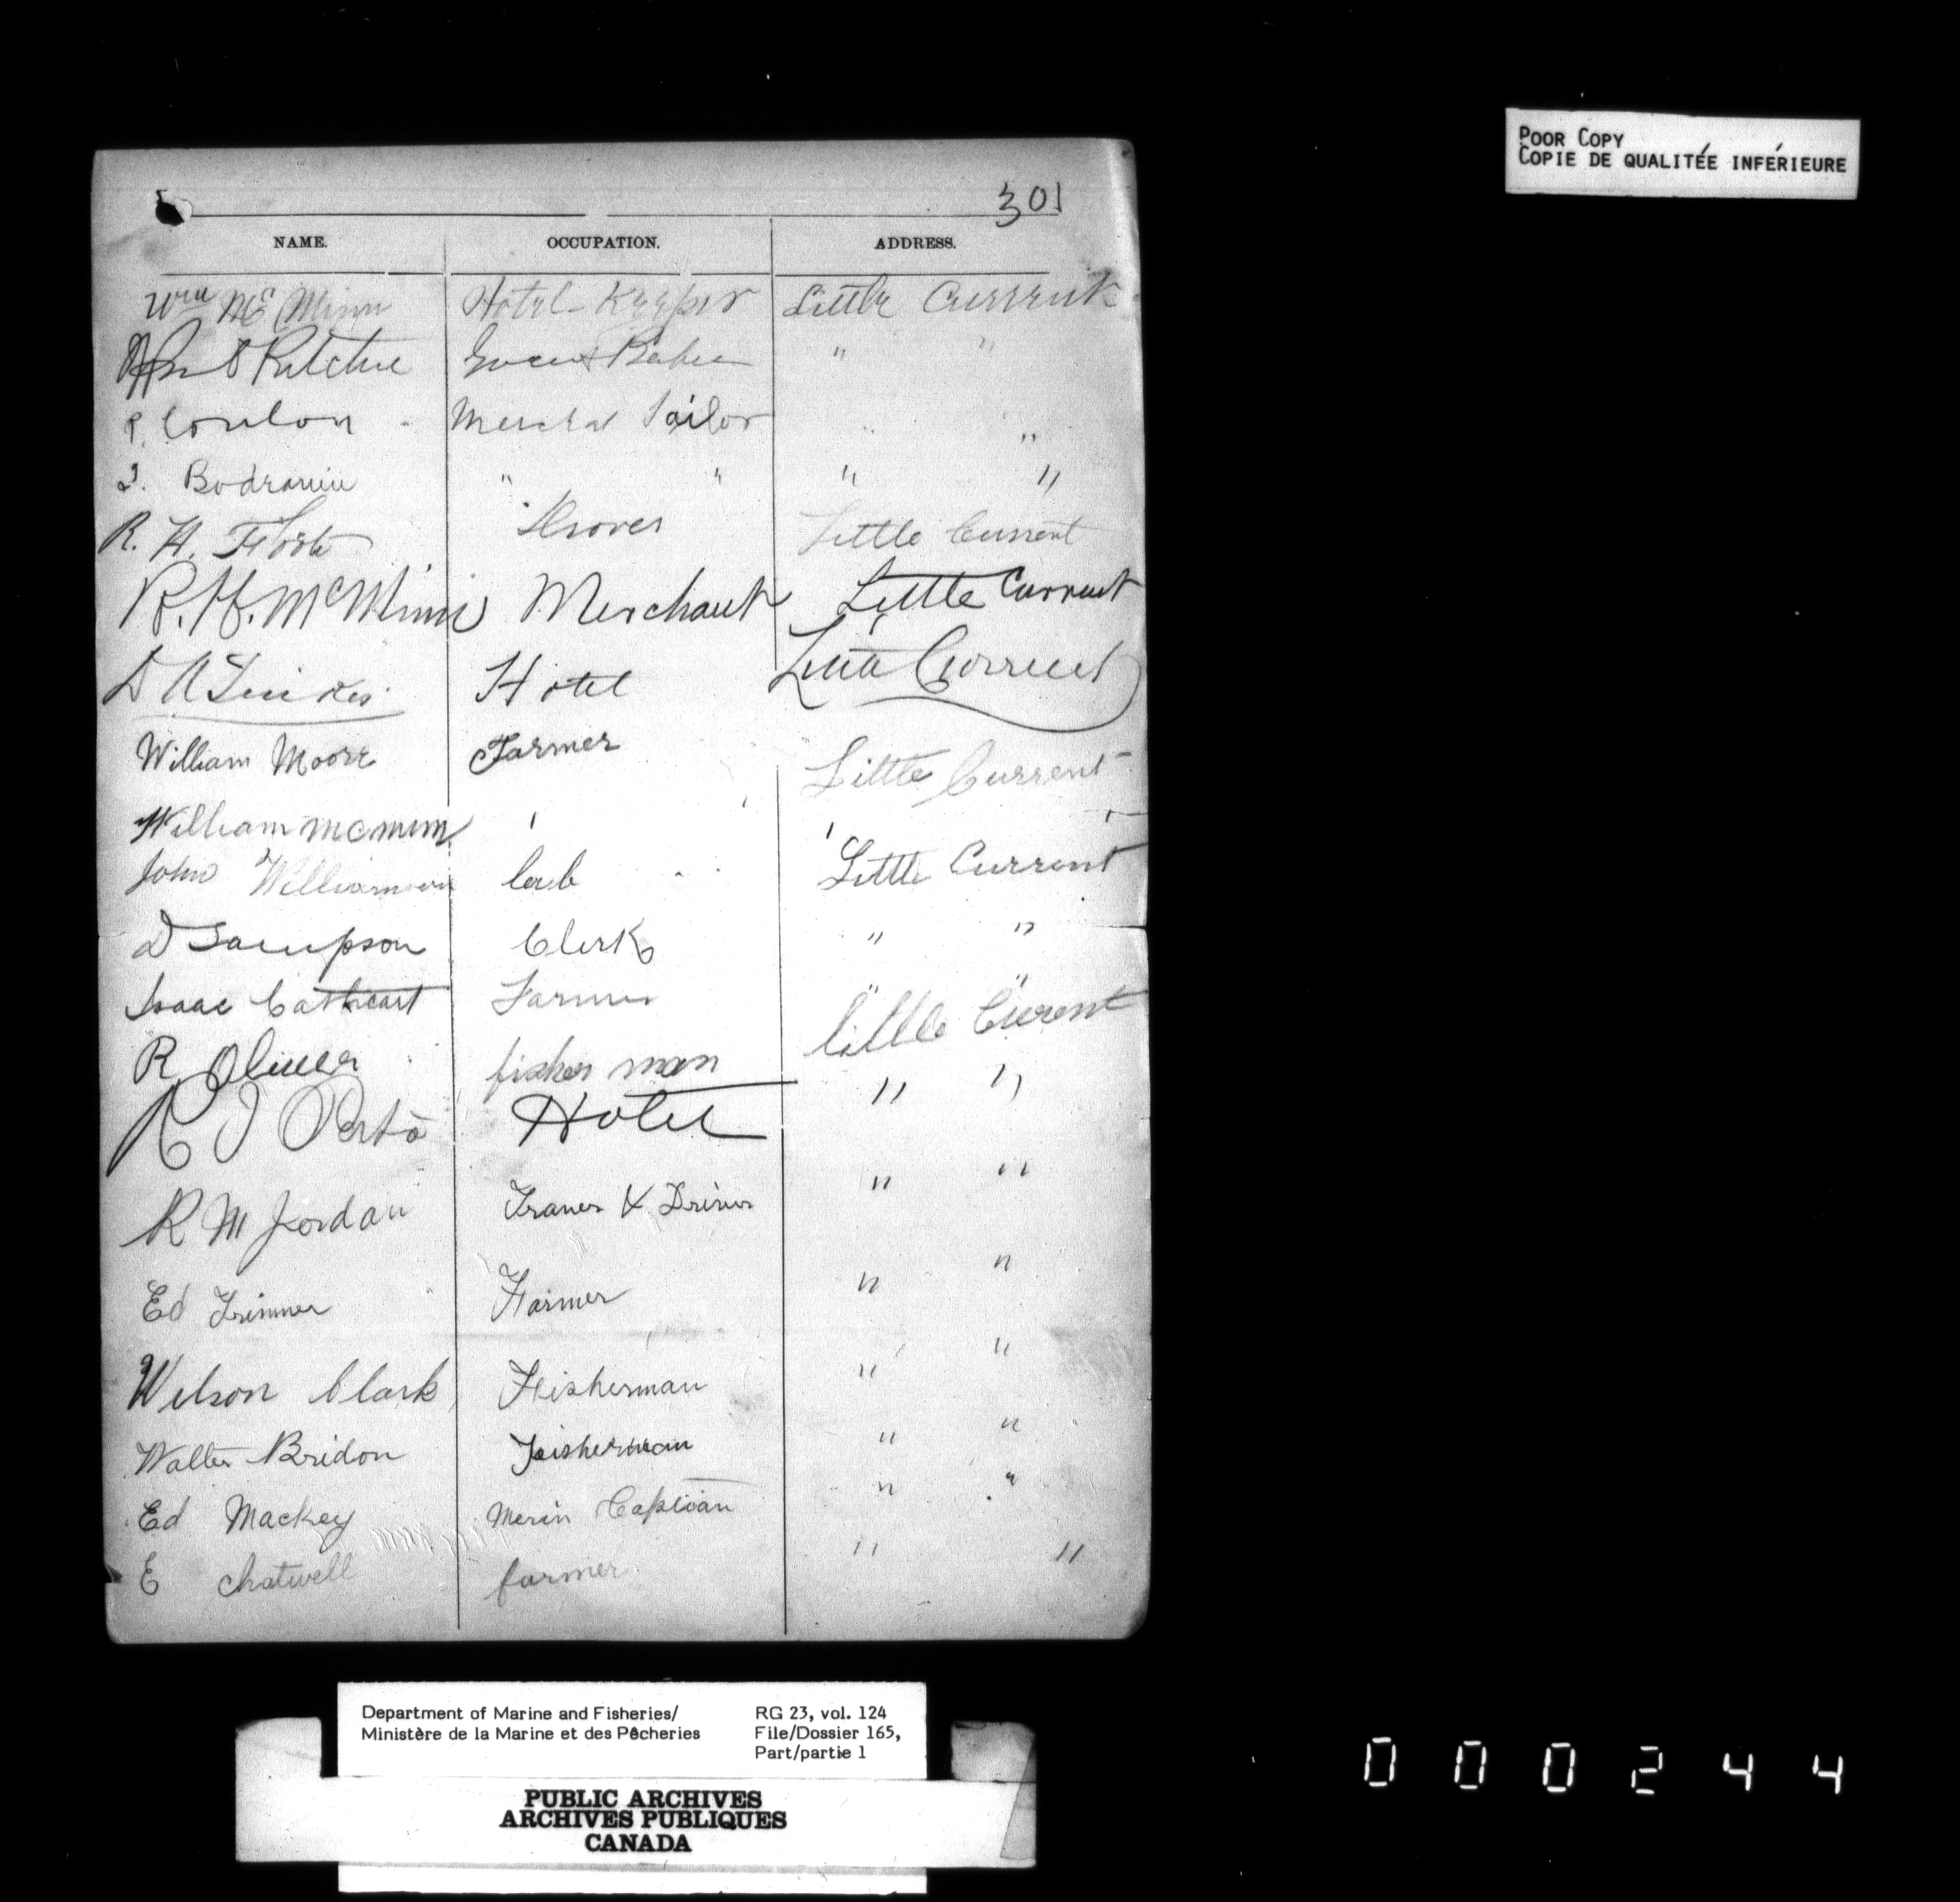 POOR COPY
COPIE DE QUALITÉE INFÉRIEURE
301
NAME. OCCUPATION. ADDRESS.
Wm McMinn Hotel-Keeper Little Current
Ritchie " "
P. Conlon Tailor " "
" " " "
R. H. Drover Little Current
R. H. McMinn Merchant Little Current
D A Hotel Current
William Moore Farmer Little Current
William mcminn ' ' '
John Williamson Little Current
D Sampson Clerk " "
Isaac Cathcart Farmer " "
R Oliver fisher man little Curent
R J Hotel " "
R M Jordan & Driver " "
Ed Trimmer Farmer " "
Wilson Clark Fisherman " "
Walter Bridon Feisherman " "
Ed Mackey Merin " "
E Chatwell farmer " "
Department of Marine and Fisheries/ RG 23, vol. 124
Ministère de la Marine et des Pêcheries File/Dossier 165,
Part/partie 1
PUBLIC ARCHIVES
ARCHIVES PUBLIQUES
CANADA
000244